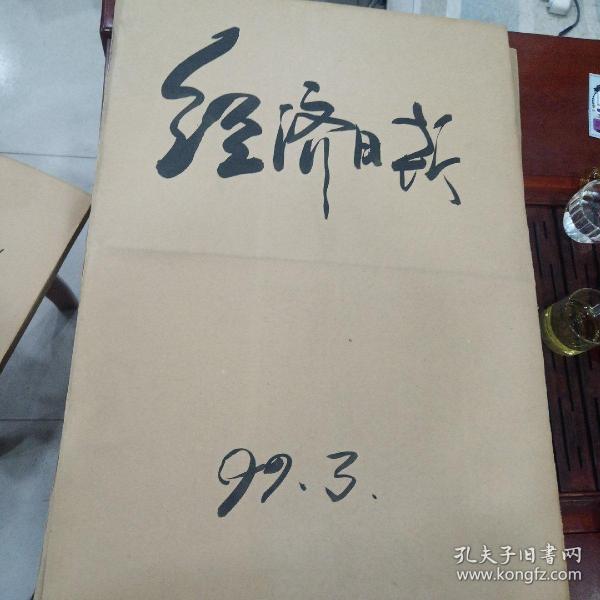 经济日报
99.3.
孔夫子旧書网
www.kongfz.com